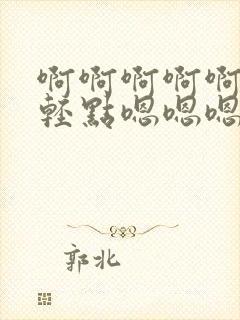 啊啊啊啊啊
轻點嗯嗯嗯
郭北